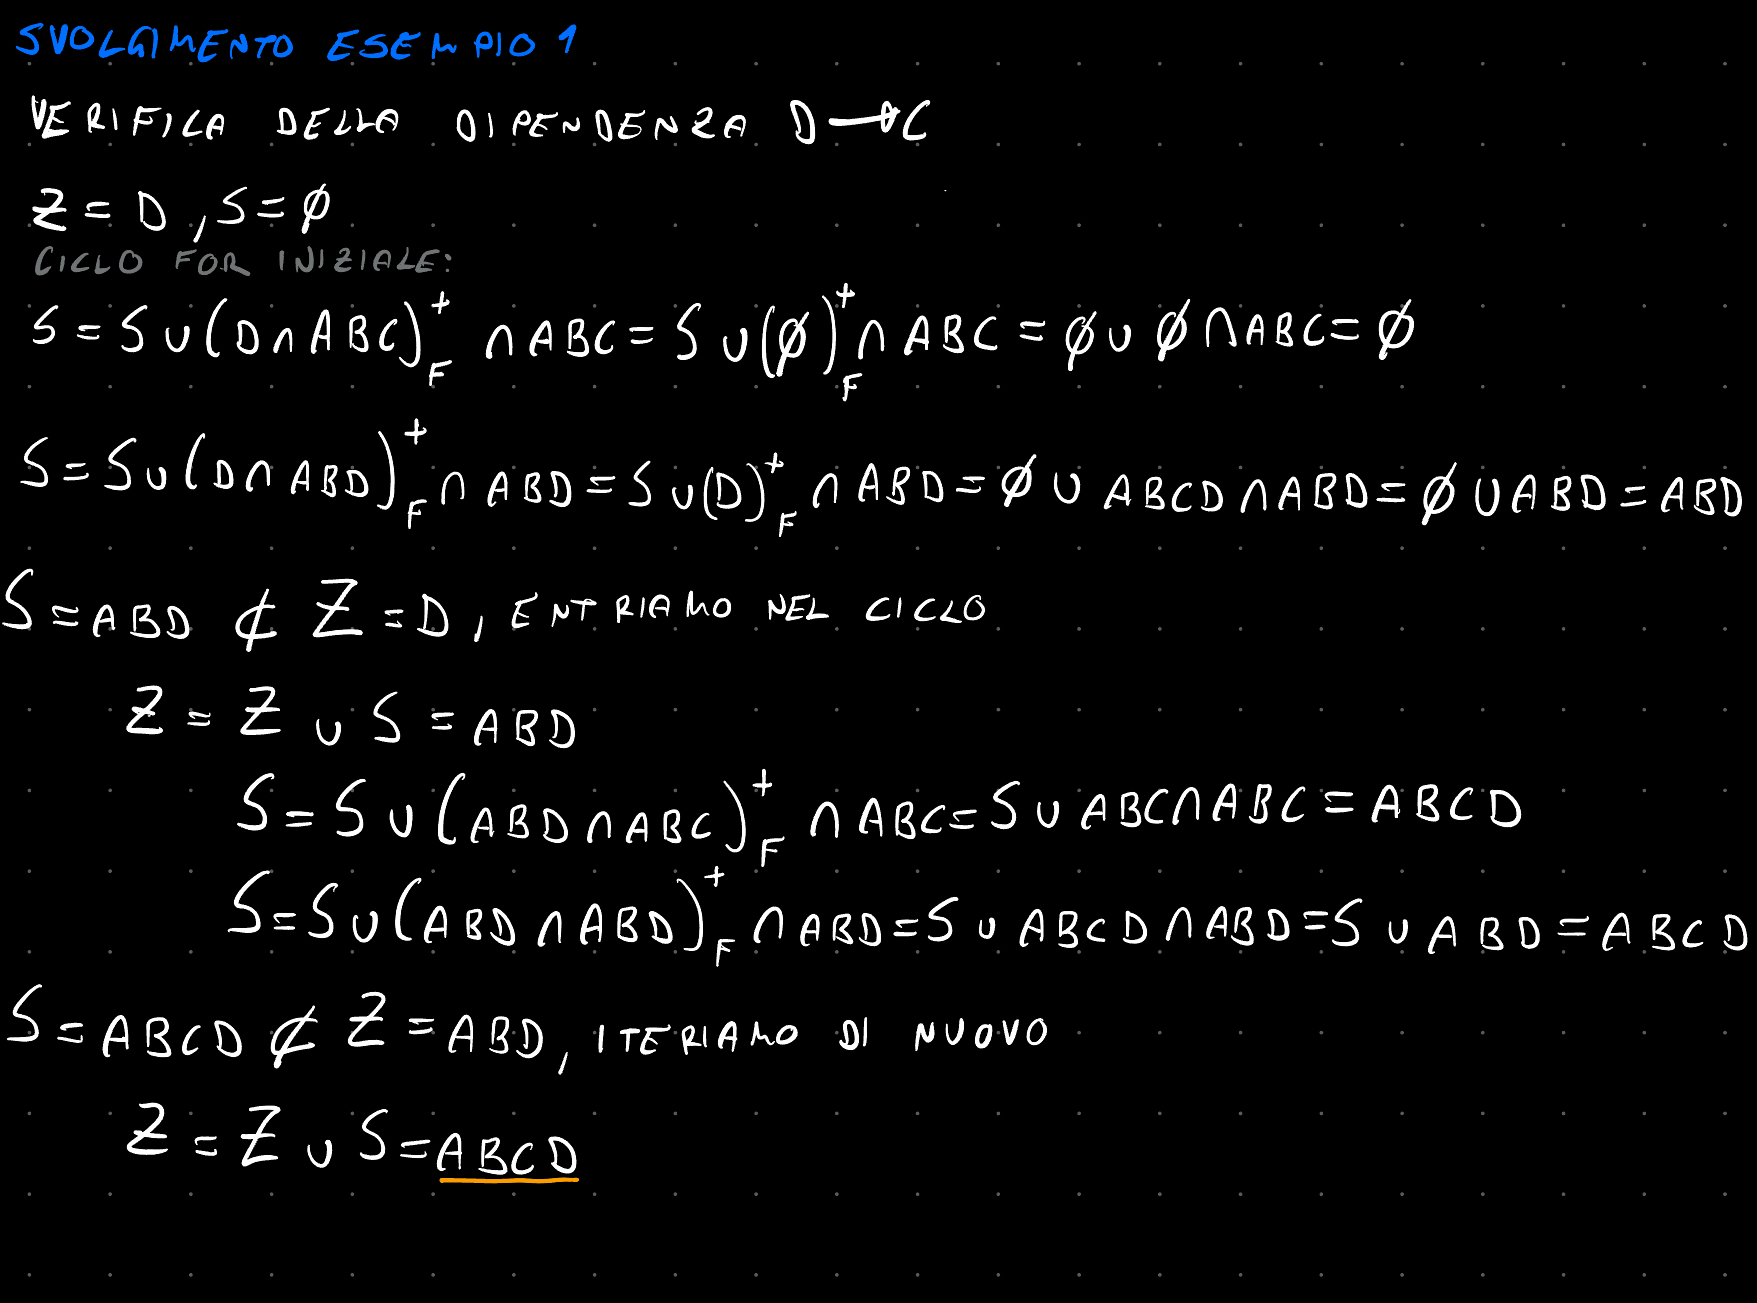 SVOLGIMENTO ESEMPIO 1
VERIFICA DELLA DIPENDENZA D→C
Z = D , S = ∅
CICLO FOR INIZIALE:
S = S ∪ (D ∩ ABC)⁺F ∩ ABC = S ∪ (∅)⁺F ∩ ABC = ∅ ∪ ∅ ∩ ABC = ∅
S = S ∪ (D ∩ ABD)⁺F ∩ ABD = S ∪ (D)⁺F ∩ ABD = ∅ ∪ ABCD ∩ ABD = ∅ ∪ ABD = ABD
S = ABD ⊄ Z = D, ENTRIAMO NEL CICLO
Z = Z ∪ S = ABD
S = S ∪ (ABD ∩ ABC)⁺F ∩ ABC = S ∪ ABC ∩ ABC = ABCD
S = S ∪ (ABD ∩ ABD)⁺F ∩ ABD = S ∪ ABCD ∩ ABD = S ∪ ABD = ABCD
S = ABCD ⊄ Z = ABD, ITERIAMO DI NUOVO
Z = Z ∪ S = ABCD